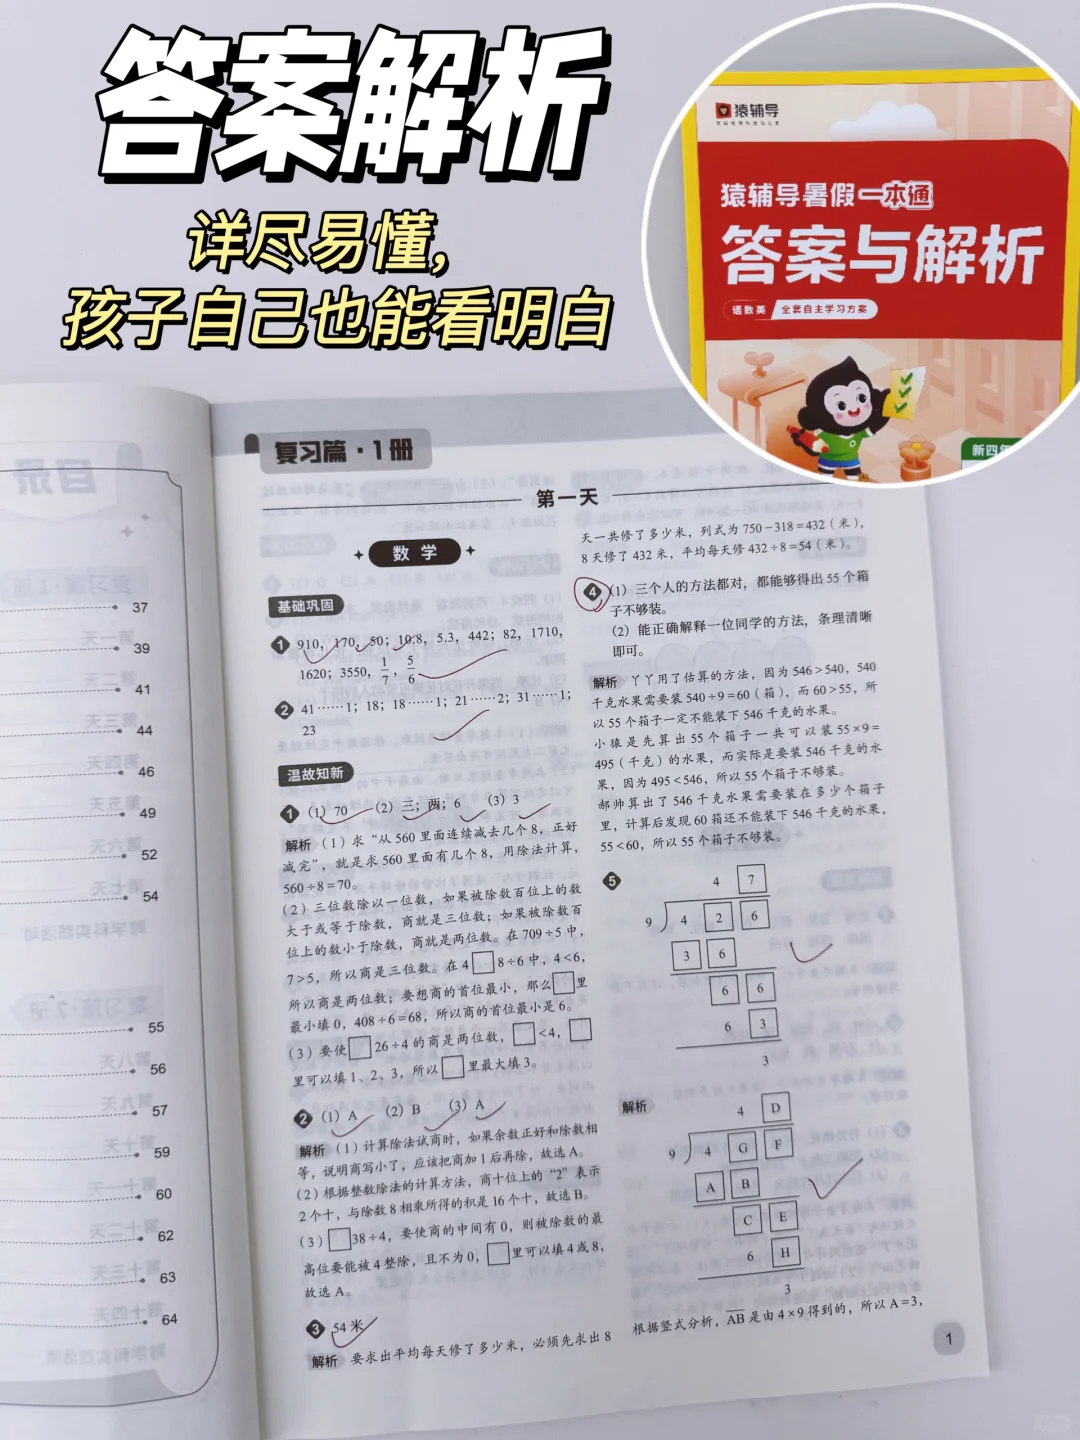 答案解析
详尽易懂,
孩子自己也能看明白
猿辅导
猿辅导暑假一本通
答案与解析
语数英 全套自主学习方案
新四年
目录
37
39
41
44
46
49
52
54
55
56
57
59
60
62
63
64
复习篇·1册
第一天
数学
基础巩固
1 910, 170, 50; 10.8, 5.3, 442; 82, 1710,
1620; 3550, 1/7, 5/6
2 41……1; 18; 18……1; 21……2; 31……1;
23
温故知新
1 (1) 70 (2) 三; 两; 6 (3) 3
解析 (1) 求“从 560 里面连续减去几个 8, 正好
减完”, 就是求 560 里面有几个 8, 用除法计算,
560÷8=70。
(2) 三位数除以一位数, 如果被除数百位上的数
大于或等于除数, 商就是三位数; 如果被除数百
位上的数小于除数, 商就是两位数。在 709÷5 中,
7>5, 所以商是三位数。在 4□8÷6 中, 4<6,
所以商是两位数; 要想商的首位最小, 那么□里
最小填 0, 408÷6=68, 所以商的首位最小是 6。
(3) 要使□26÷4 的商是两位数, □<4, □
里可以填 1、2、3, 所以□里最大填 3。
2 (1) A (2) B (3) A
解析 (1) 计算除法试商时, 如果余数正好和除数相
等, 说明商写小了, 应该把商加 1 后再除, 故选 A。
(2) 根据整数除法的计算方法, 商十位上的“2”表示
2 个十, 与除数 8 相乘所得的积是 16 个十, 故选 B。
(3) □38÷4, 要使商的中间有 0, 则被除数的最
高位要能被 4 整除, 且不为 0, □里可以填 4 或 8,
故选 A。
3 54 米
解析 要求出平均每天修了多少米, 必须先求出 8
天一共修了多少米, 列式为 750-318=432 (米),
8 天修了 432 米, 平均每天修 432÷8=54 (米)。
4 (1) 三个人的方法都对, 都能够得出 55 个箱
子不够装。
(2) 能正确解释一位同学的方法, 条理清晰
即可。
解析 丫丫用了估算的方法, 因为 546>540, 540
千克水果需要装 540÷9=60 (箱), 而 60>55, 所
以 55 个箱子一定不能装下 546 千克的水果。
小猿是先算出 55 个箱子一共可以装 55×9=
495 (千克) 的水果, 而实际是要装 546 千克的水
果, 因为 495<546, 所以 55 个箱子不够装。
郝帅算出了 546 千克水果需要装在多少个箱子
里, 计算后发现 60 箱还不能装下 546 千克的水果,
55<60, 所以 55 个箱子不够装。
5
4 7
9 4 2 6
3 6
6 6
6 3
3
解析
4 D
9 4 G F
A B
C E
6 H
3
根据竖式分析, AB 是由 4×9 得到的, 所以 A=3,
1